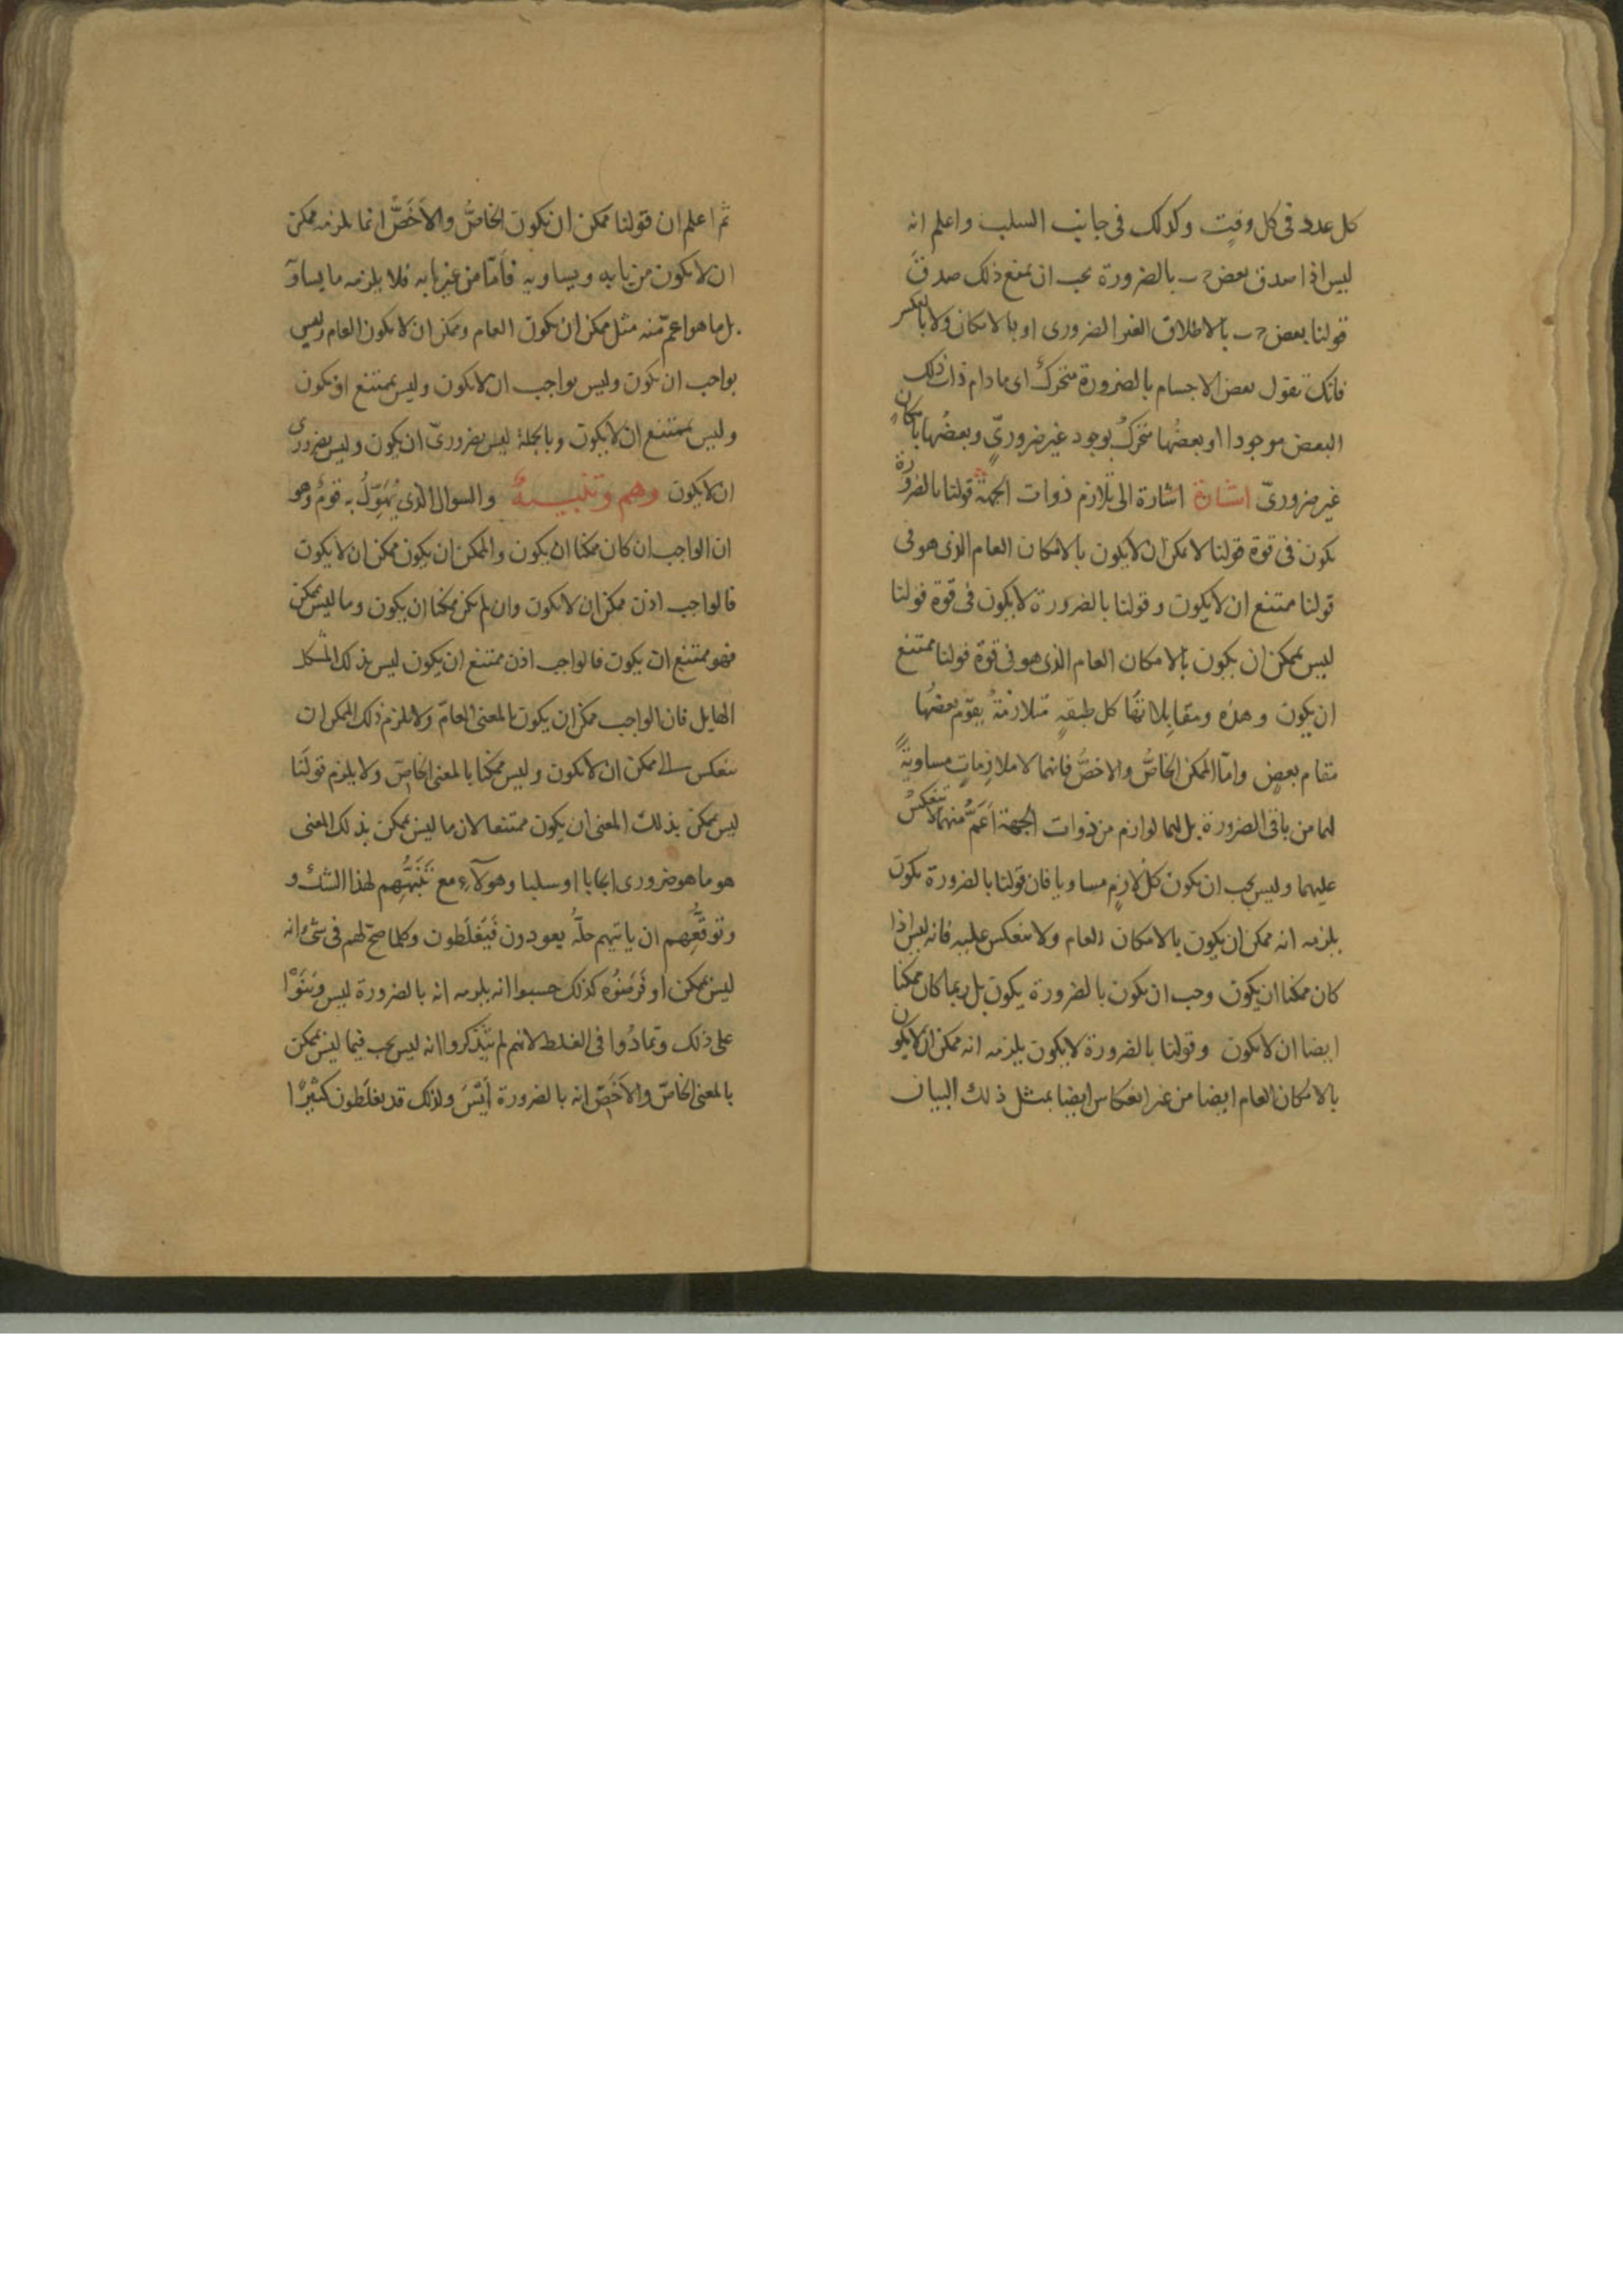 كل عدد فى كل وقت وكذلك فى جانب السلب واعلم انه
ليس اذا صدق بعض ج ب بالضرورة يجب ان يمنع ذلك صدق
قولنا بعض ج ب بالاطلاق الغير الضرورى او بالامكان ولا بالعكس
فانك تقول بعض الاجسام بالضرورة متحرك اى مادام ذات ذلك
البعض موجودا او بعضها متحرك بوجود غير ضرورىٍّ وبعضها بامكان
غير ضرورىّ اشارة اشارة الى تلازم ذوات الجهة قولنا بالضرورة
يكون فى قوة قولنا لا يمكن ان لا يكون بالامكان العام الذى هو فى
قولنا ممتنع ان لا يكون وقولنا بالضرورة لا يكون فى قوة قولنا
ليس بممكن ان يكون بالامكان العام الذى هو فى قوة قولنا ممتنع
ان يكون وهذه ومقابلاتها كل طبقةٍ متلازمةٌ يقوم بعضها
مقام بعضٍ وامّا الممكن الخاصُّ والاخصُّ فانهما لا ملازماتٍ مساويةً
لهما من باقى الضرورة بل لهما لوازم من ذوات الجهة اَعَمُّ منهما لا تنعكسُ
عليهما وليس يجب ان يكون كل لازمٍ مساويا فان قولنا بالضرورة يكون
يلزمه انه ممكن ان يكون بالامكان العام ولا ينعكس عليه فانه ليس اذا
كان ممكنا ان يكون وجب ان يكون بالضرورة يكون بل ربما كان ممكنا
ايضا ان لا يكون وقولنا بالضرورة لا يكون يلزمه انه ممكن ان لا يكون
بالامكان العام ايضا من غير انعكاس ايضا بمثل ذلك البيان
ثم اعلم ان قولنا ممكن ان يكون الخاصُّ والاَخَصُّ انما يلزمه ممكن
ان لا يكون من بابه ويساويه فاَمّا من غير بابه فلا يلزمه ما يساو
بل ما هو اعمّ منه مثل ممكن ان يكون العام وممكن ان لا يكون العام وليس
بواجب ان يكون وليس بواجب ان لا يكون وليس بممتنع ان يكون
وليس بممتنع ان لا يكون وبالجملة ليس بضرورىّ ان يكون وليس بضرورى
ان لا يكون وهم وتنبيهٌ والسوال الذى يُهَوِّلُ به قومٌ وهو
ان الواجب ان كان ممكنا ان يكون والممكن ان يكون ممكن ان لا يكون
فالواجب اذن ممكن ان لا يكون وان لم يكن ممكنا ان يكون وما ليس بممكن
فهو ممتنع ان يكون فالواجب اذن ممتنع ان يكون ليس بذلك المشكل
الهايل فان الواجب ممكن ان يكون بالمعنى العامّ ولا يلزم ذلك الممكن ان
ينعكس الى ممكن ان لا يكون وليس ممكنا بالمعنى الخاصّ ولا يلزم قولَنا
ليس بممكن بذلك المعنى ان يكون ممتنعا لان ما ليس بممكن بذلك المعنى
هو ما هو ضرورى ايجابا او سلبا وهولآء مع تَنَبُّهِهم لهذا الشك و
وتوقُّعِهم ان ياتيهم حلُّه يعودون فَيَغلَطون وكلما صحّ لهم فى شئ انه
ليس بممكن او فَرَضوُه كذلك حسبوا انه يلزمه انه بالضرورة ليس وبَنَوْا
على ذلك وتمادُوا فى الغلط لانهم لم يَتذَكروا انه ليس يجب فيما ليس بممكن
بالمعنى الخاصّ والاَخَصّ انه بالضرورة لَيْسَ ولذلك قد يغلَطون كثيرًا